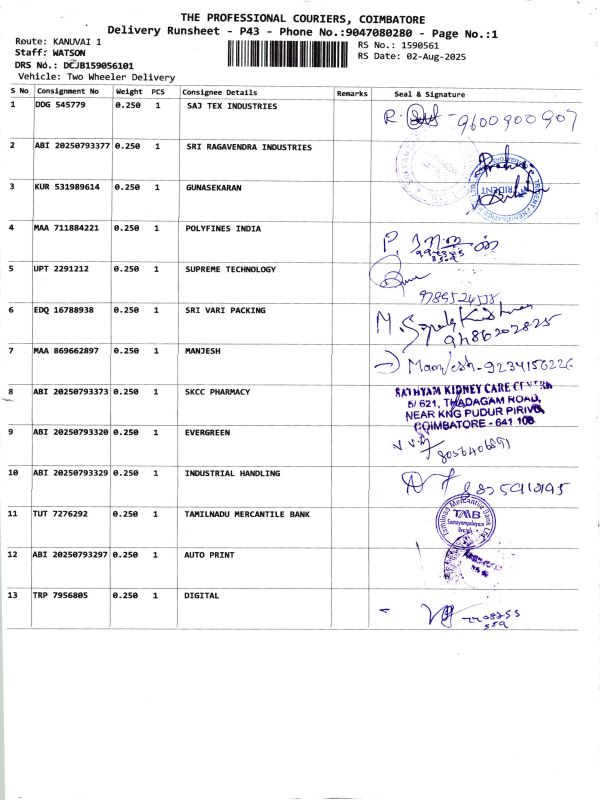 THE PROFESSIONAL COURIERS, COIMBATORE
Delivery Runsheet - P43 - Phone No.:9047080280 - Page No.:1
Route: KANUVAI 1
Staff: WATSON
DRS No.: DCJB159056101
Vehicle: Two Wheeler Delivery
RS No.: 1590561
RS Date: 02-Aug-2025
S No Consignment No Weight PCS Consignee Details Remarks Seal & Signature
1 DDG 545779 0.250 1 SAJ TEX INDUSTRIES R. 9600900907
2 ABI 20250793377 0.250 1 SRI RAGAVENDRA INDUSTRIES
3 KUR 531989614 0.250 1 GUNASEKARAN
TRIDENT
4 MAA 711884221 0.250 1 POLYFINES INDIA
5 UPT 2291212 0.250 1 SUPREME TECHNOLOGY
6 EDQ 16788938 0.250 1 SRI VARI PACKING
7 MAA 869662897 0.250 1 MANJESH Manjesh-9234156226
8 ABI 20250793373 0.250 1 SKCC PHARMACY
SATHYAM KIDNEY CARE CENTRE
5/ 621, THADAGAM ROAD,
NEAR KNG PUDUR PIRIVU,
COIMBATORE - 641 108
9 ABI 20250793320 0.250 1 EVERGREEN
10 ABI 20250793329 0.250 1 INDUSTRIAL HANDLING
11 TUT 7276292 0.250 1 TAMILNADU MERCANTILE BANK
Tamilnad Mercantile Bank Ltd.
TMB
Branch
12 ABI 20250793297 0.250 1 AUTO PRINT
13 TRP 7956805 0.250 1 DIGITAL